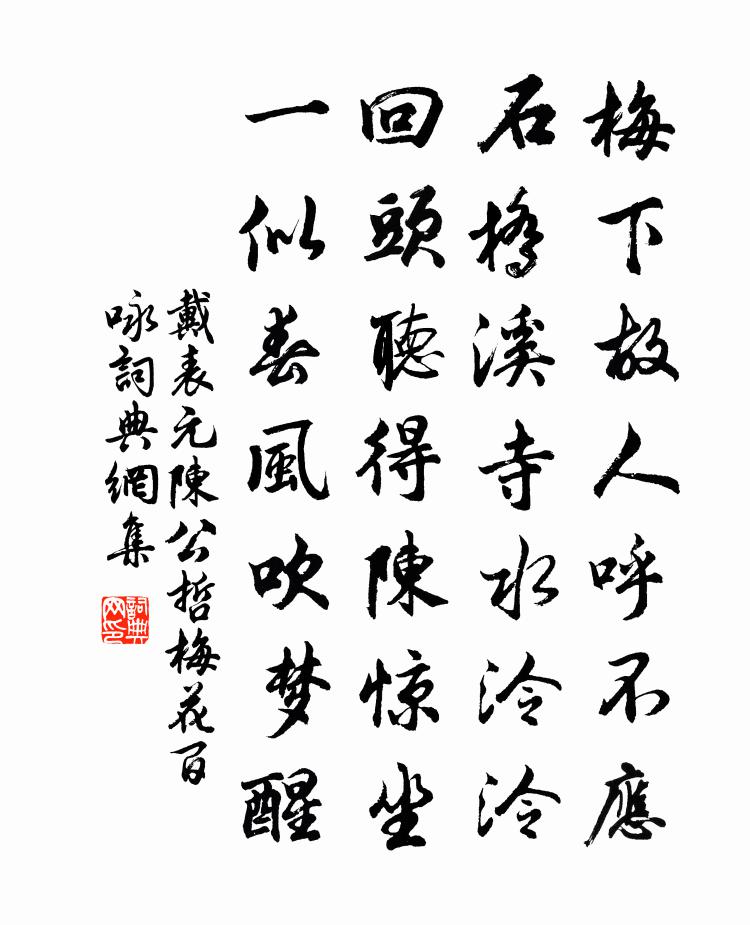 梅下故人呼不應
石橋溪寺水泠泠
回頭聽得陳惊坐
一似春風吹梦醒
戴表元陳公哲梅花百
咏詞典網集
詞典网印